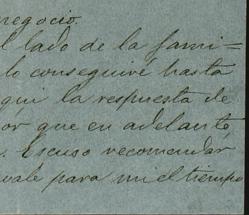 negocio.
l lado de la fami-
lo conseguiré hasta
qui la respuesta de
or que en adelante,
. Escuso recomendar
vale para mi el tiempo